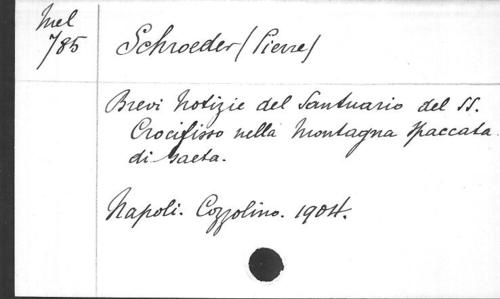 Mel
785
Schroeder (Pierre)
Brevi Notizie del Santuario del SS.
Crocifisso nella Montagna Spaccata
di Gaeta.
Napoli. Cozzolino. 1904.